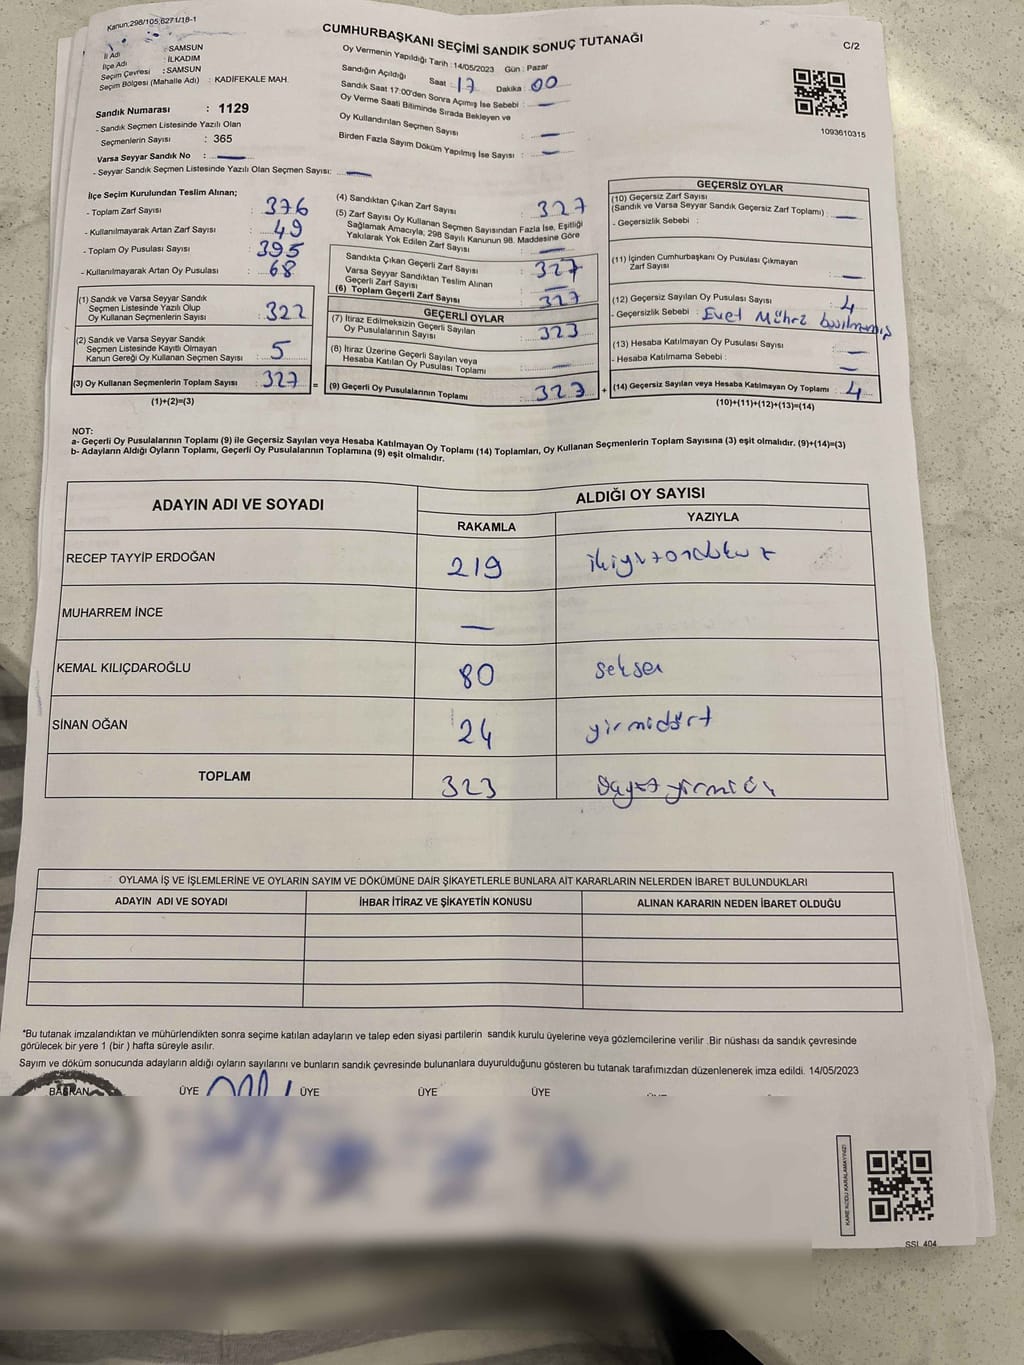 Kanun;298/105,6271/18-1
CUMHURBAŞKANI SEÇİMİ SANDIK SONUÇ TUTANAĞI
C/2
İl Adı : SAMSUN
İlçe Adı : İLKADIM
Seçim Çevresi : SAMSUN
Seçim Bölgesi (Mahalle Adı) : KADİFEKALE MAH.
Sandık Numarası : 1129
- Sandık Seçmen Listesinde Yazılı Olan
Seçmenlerin Sayısı : 365
Varsa Seyyar Sandık No : —
- Seyyar Sandık Seçmen Listesinde Yazılı Olan Seçmen Sayısı: —
Oy Vermenin Yapıldığı Tarih : 14/05/2023 Gün : Pazar
Sandığın Açıldığı Saat : 17 Dakika : 00
Sandık Saat 17:00'den Sonra Açılmış İse Sebebi : —
Oy Verme Saati Bitiminde Sırada Bekleyen ve
Oy Kullandırılan Seçmen Sayısı : —
Birden Fazla Sayım Döküm Yapılmış İse Sayısı : —
1093610315
İlçe Seçim Kurulundan Teslim Alınan;
- Toplam Zarf Sayısı : 376
- Kullanılmayarak Artan Zarf Sayısı : 49
- Toplam Oy Pusulası Sayısı : 395
- Kullanılmayarak Artan Oy Pusulası : 68
(1) Sandık ve Varsa Seyyar Sandık
Seçmen Listesinde Yazılı Olup
Oy Kullanan Seçmenlerin Sayısı : 322
(2) Sandık ve Varsa Seyyar Sandık
Seçmen Listesinde Kayıtlı Olmayan
Kanun Gereği Oy Kullanan Seçmen Sayısı : 5
(3) Oy Kullanan Seçmenlerin Toplam Sayısı : 327 =
(1)+(2)=(3)
(4) Sandıktan Çıkan Zarf Sayısı : 327
(5) Zarf Sayısı Oy Kullanan Seçmen Sayısından Fazla İse, Eşitliği
Sağlamak Amacıyla, 298 Sayılı Kanunun 98. Maddesine Göre
Yakılarak Yok Edilen Zarf Sayısı : —
Sandıkta Çıkan Geçerli Zarf Sayısı : 327
Varsa Seyyar Sandıktan Teslim Alınan
Geçerli Zarf Sayısı : —
(6) Toplam Geçerli Zarf Sayısı : 327
GEÇERLİ OYLAR
(7) İtiraz Edilmeksizin Geçerli Sayılan
Oy Pusulalarının Sayısı : 323
(8) İtiraz Üzerine Geçerli Sayılan veya
Hesaba Katılan Oy Pusulası Toplamı : —
(9) Geçerli Oy Pusulalarının Toplamı : 323 +
GEÇERSİZ OYLAR
(10) Geçersiz Zarf Sayısı
(Sandık ve Varsa Seyyar Sandık Geçersiz Zarf Toplamı) : —
- Geçersizlik Sebebi :
(11) İçinden Cumhurbaşkanı Oy Pusulası Çıkmayan
Zarf Sayısı : —
(12) Geçersiz Sayılan Oy Pusulası Sayısı : 4
- Geçersizlik Sebebi : Evet Mührü basılmamış
(13) Hesaba Katılmayan Oy Pusulası Sayısı : —
- Hesaba Katılmama Sebebi : —
(14) Geçersiz Sayılan veya Hesaba Katılmayan Oy Toplamı : 4
(10)+(11)+(12)+(13)=(14)
NOT:
a- Geçerli Oy Pusulalarının Toplamı (9) ile Geçersiz Sayılan veya Hesaba Katılmayan Oy Toplamı (14) Toplamları, Oy Kullanan Seçmenlerin Toplam Sayısına (3) eşit olmalıdır. (9)+(14)=(3)
b- Adayların Aldığı Oyların Toplamı, Geçerli Oy Pusulalarının Toplamına (9) eşit olmalıdır.
ADAYIN ADI VE SOYADI ALDIĞI OY SAYISI
RAKAMLA YAZIYLA
RECEP TAYYİP ERDOĞAN 219 ikiyüzondokuz
MUHARREM İNCE —
KEMAL KILIÇDAROĞLU 80 seksen
SİNAN OĞAN 24 yirmidört
TOPLAM 323 üçyüzyirmiüç
OYLAMA İŞ VE İŞLEMLERİNE VE OYLARIN SAYIM VE DÖKÜMÜNE DAİR ŞİKAYETLERLE BUNLARA AİT KARARLARIN NELERDEN İBARET BULUNDUKLARI
ADAYIN ADI VE SOYADI İHBAR İTİRAZ VE ŞİKAYETİN KONUSU ALINAN KARARIN NEDEN İBARET OLDUĞU
*Bu tutanak imzalandıktan ve mühürlendikten sonra seçime katılan adayların ve talep eden siyasi partilerin sandık kurulu üyelerine veya gözlemcilerine verilir .Bir nüshası da sandık çevresinde
görülecek bir yere 1 (bir ) hafta süreyle asılır.
Sayım ve döküm sonucunda adayların aldığı oyların sayılarını ve bunların sandık çevresinde bulunanlara duyurulduğunu gösteren bu tutanak tarafımızdan düzenlenerek imza edildi. 14/05/2023
BAŞKAN ÜYE ÜYE ÜYE ÜYE
KARE KODU KARALAMAYINIZ!
SSL 404